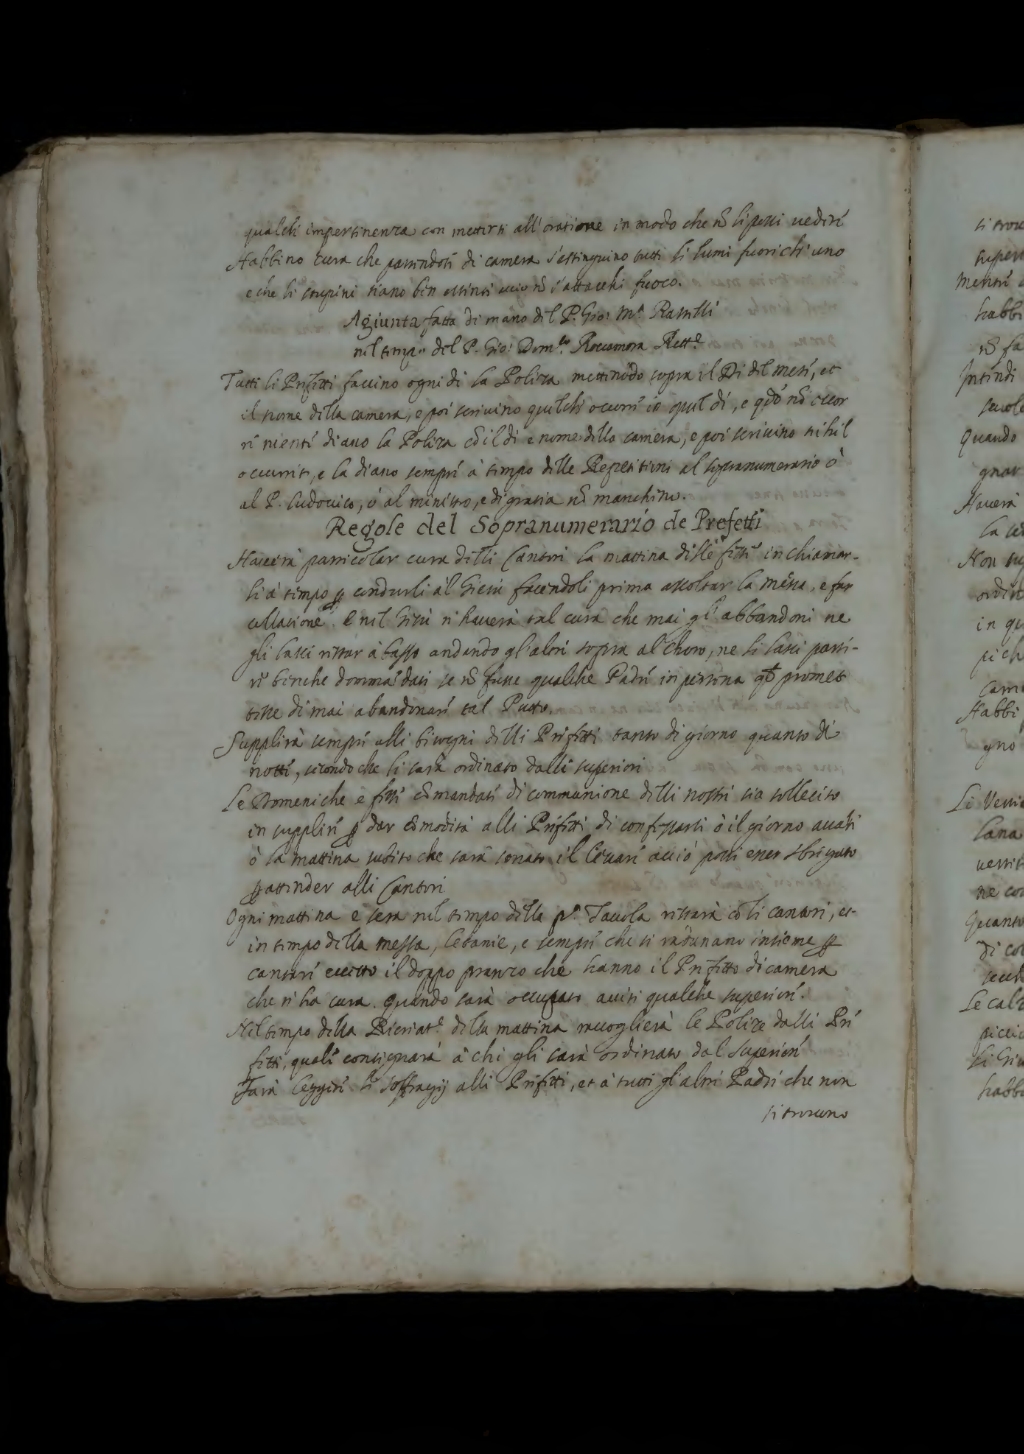 qualche impertinenza con mettersi all'oratione in modo che nō si possi vedere
Habbino cura che partendosi di camera s'estinguino tutti li lumi fuorche uno
e che li stupini siano ben estinti acciò nō s'attacchi fuoco.
Agiunta fatta di mano del P. Gio: Mª Rasselli
nel tempo del P. Gio: Domco Roccamora Rettre
Tutti li Prefetti faccino ogni di la Poliza mettendo sopra il Di del mese, et
il nome della camera, e poi scrivino quel che occorre in quel dì, e qdo nō occor
re niente diano la Poliza cō il di e nome della camera, e poi scrivino nihil
occurrit, e la diano sempre à tempo delle Repetitioni al sopranumerario ò
al P. Ludovico, ò al ministro, e di gratia nō manchino.
Regole del Sopranumerario de Prefetti
Haverà particolar cura delli Cantori la mattina delle feste in chiamar-
li à tempo ꝑ condurli al Giesù facendoli prima ascoltar la messa, e far
collatione. E nel Giesù n'haverà tal cura che mai gl'abbandoni ne
gli lasci restar à basso andando gl'altri sopra al Choro, ne li lasci parti-
re benche domādati se nō fusse qualche Padre in persona
tesse di mai abandonare tal Putto.
Supplirà sempre alli bisogni delli Prefetti tanto di giorno quanto di
notte, secondo che li sarà ordinato dalli superiori
Le Domeniche e feste comandate di communione delli nostri sia sollecito
in supplire ꝑ dar cōmodità alli Prefetti di confessarsi ò il giorno avanti
ò la mattina subito che sarà sonato il levare acciò possi esser sbrigato
ꝑ attender alli Cantori
Ogni mattina e sera nel tempo della pª Tavola restarà cō li cantori, et
in tempo della messa, letanie, e sempre che si radunano insieme ꝑ
cantare eccetto il doppo pranzo che hanno il Prefetto di camera
che n'ha cura. Quando sarà occupato avisi qualche superiore.
Nel tempo della Ricreate della mattina raccoglierà le Polize dalli Pre
fetti, quali consignarà à chi gli sarà ordinato dal Superiore
Farà leggere li soffragij alli Prefetti, et à tutti gl'altri Padri che non
si trovano